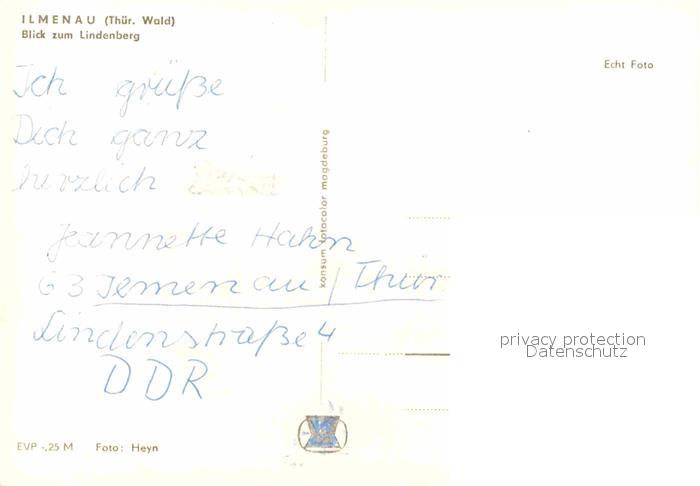 ILMENAU (Thür. Wald)
Blick zum Lindenberg
Echt Foto
Ich grüße
Dich ganz
herzlich
Jeannette Hahn
63 Jemenau / Thür
Lindenstraße 4
DDR
konsum fotocolor magdeburg
privacy protection
Datenschutz
EVP -,25 M Foto: Heyn